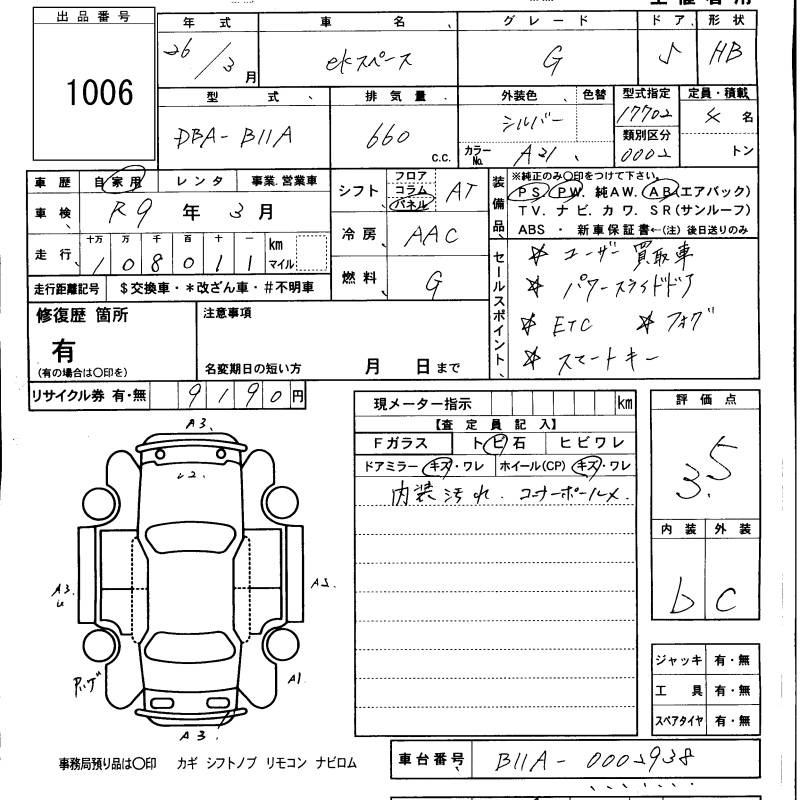 出品番号
1006
年式 車名 グレード ドア 形状
26/3月 ekスペース G 5 HB
型式 排気量 外装色 色替 型式指定 定員・積載
DBA-B11A 660 c.c. シルバー 17702 4名
カラーNo. A31 類別区分 0002 トン
車歴 自家用 レンタ 事業.営業車
車検 R9年3月
走行 十万 万 千 百 十 一
108011 km マイル
走行距離記号 $交換車・*改ざん車・#不明車
シフト フロア コラム パネル AT
冷房 AAC
燃料 G
装備品
※純正のみ○印をつけて下さい。
PS PW. 純AW. AB(エアバック)
TV. ナビ. カワ. SR(サンルーフ)
ABS ・ 新車保証書←(注)後日送りのみ
セールスポイント
☆ ユーザー買取車
☆ パワースライドドア
☆ ETC ☆ フォグ
☆ スマートキー
修復歴 箇所
有
(有の場合は○印を)
注意事項
名変期日の短い方 月 日まで
リサイクル券 有・無 9190円
現メーター指示 km
【査定員記入】
Fガラス トビ石 ヒビワレ
ドアミラー キズ・ワレ ホイール(CP) キズ・ワレ
内装汚れ. コーナーポールメ.
評価点
3.5
内装 外装
b C
ジャッキ 有・無
工具 有・無
スペアタイヤ 有・無
A3.
U2.
A3.
U
A1.
A3.
事務局預り品は○印 カギ シフトノブ リモコン ナビロム
車台番号 B11A-0002938